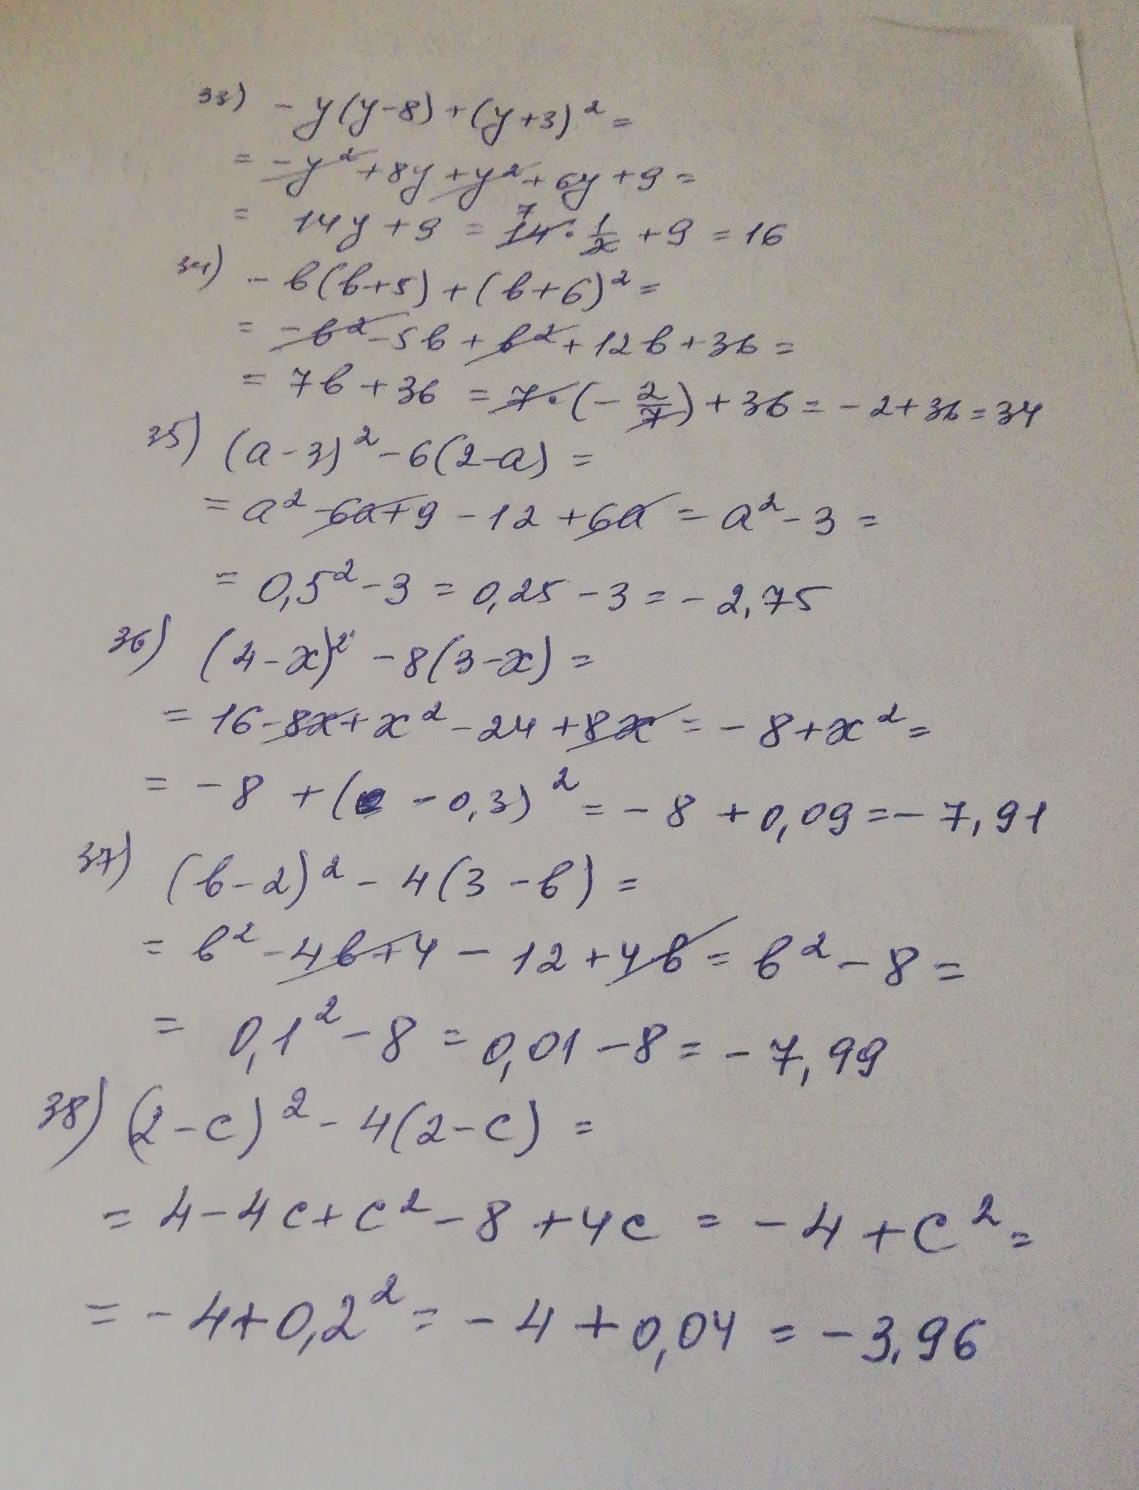 33) - y(y-8)+(y+3)² =
= -y²+8y+y²+6y+9 =
= 14y+9 = 14· 1/2 +9 = 16
34) - b(b+5)+(b+6)² =
= -b²-5b+b²+12b+36 =
= 7b+36 = 7·(-2/7)+36 = -2+36=34
35) (a-3)²-6(2-a) =
= a²-6a+9-12+6a = a²-3 =
= 0,5²-3 = 0,25-3 = -2,75
36) (4-x)² -8(3-x) =
= 16-8x+x²-24+8x = -8+x² =
= -8 +(-0,3)² = -8 +0,09 = -7,91
37) (b-2)² - 4(3-b) =
= b²-4b+4-12+4b = b²-8 =
= 0,1²-8 = 0,01-8 = -7,99
38) (2-c)² - 4(2-c) =
= 4-4c+c²-8+4c = -4+c² =
= -4+0,2² = -4+0,04 = -3,96